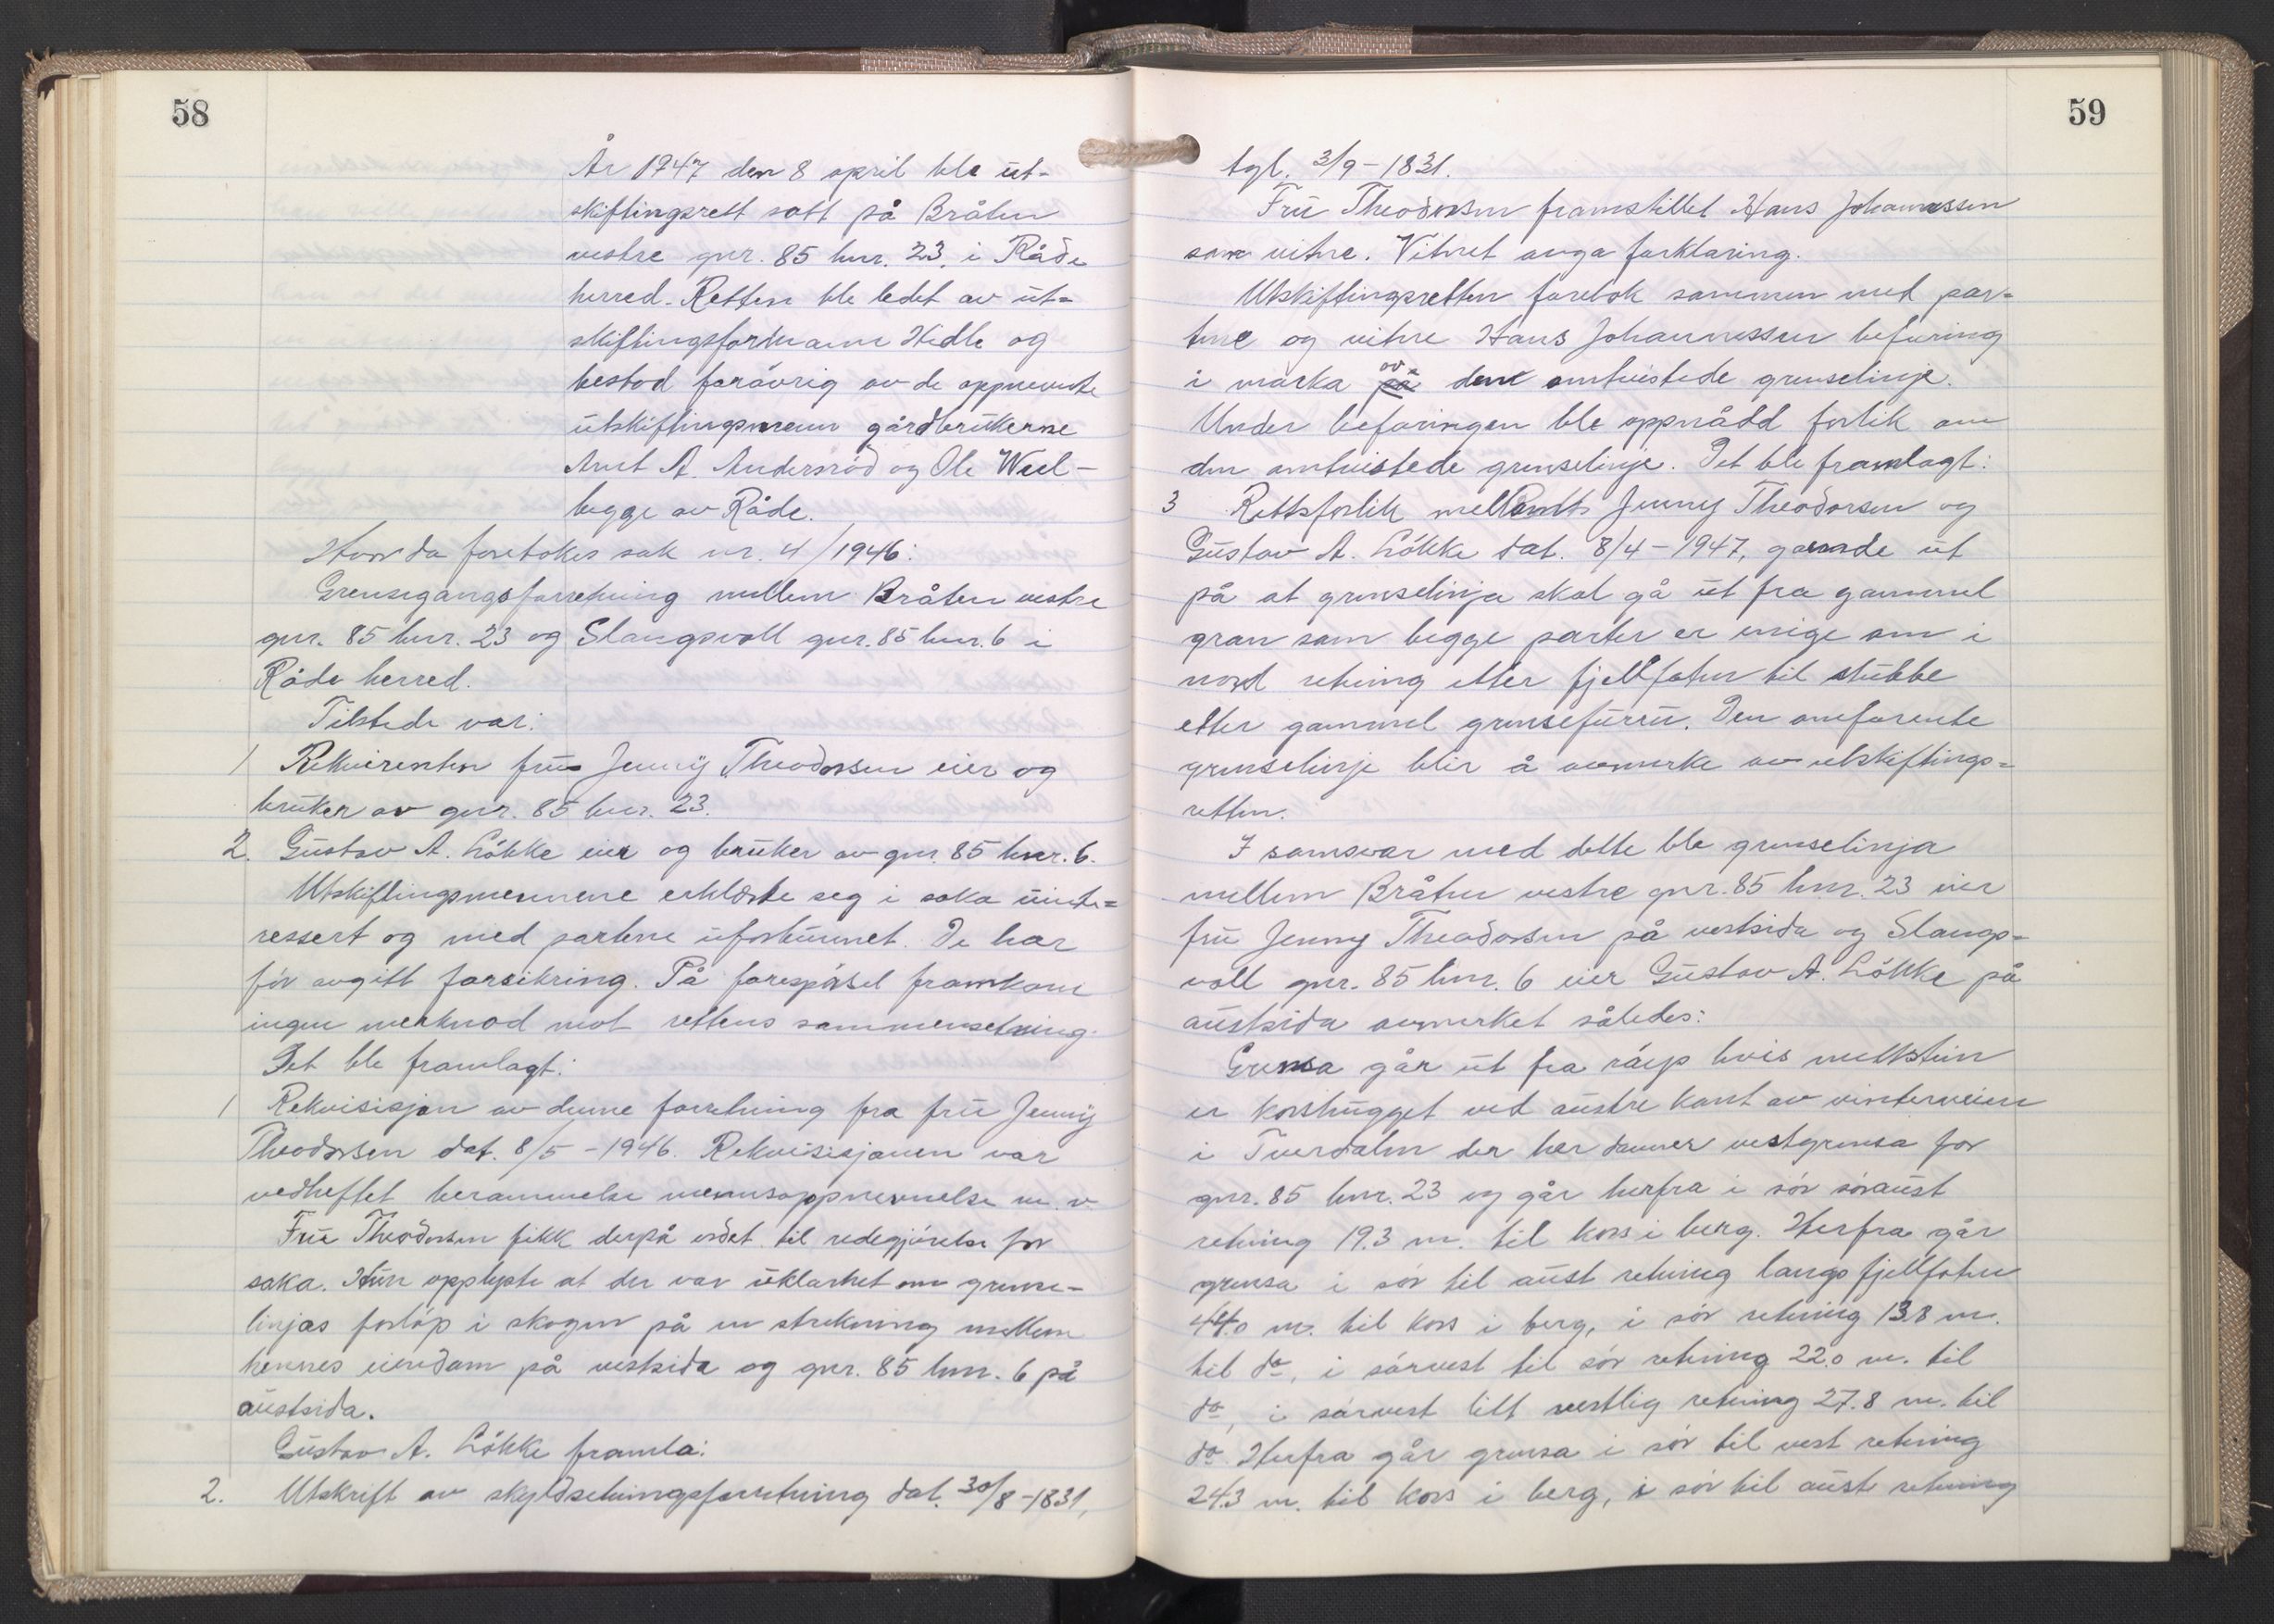 58
År 1947 den 8 april ble ut-
skiftingsrett satt på Bråten
vestre gnr. 85 bnr. 23. i Råde
herred. Retten ble ledet av ut=
skiftingsformann Hidle og
bestod forøvrig av de oppnevnte
utskiftingsmenn gårdbrukerne
Arnt A. Andersrød og Ole Weel -
begge av Råde.
Hvor da foretokes sak nr. 4/1946:
Grensegangsforretning mellem Bråten vestre
gnr. 85 bnr. 23 og Slangsvoll gnr. 85 bnr. 6 i
Råde herred.
Tilstede var:
1 Rekvirenten fru Jenny Theodorsen eier og
bruker av gnr. 85 bnr. 23.
2. Gustav A. Løkke eier og bruker av gnr. 85 bnr. 6.
Utskiftingsmennene erklærte seg i saka uinte=
ressert og med partene ubeslektet. De har
før avgitt forsikring. På forespørsel framkom
ingen merknad mot rettens sammensetning.
Det ble framlagt:
1 Rekvisisjon av denne forretning fra fru Jenny
Theodorsen dat. 8/5 - 1946. Rekvisisjonen var
vedheftet berammelse mennsoppnevnelse m. v
Fru Theodorsen fikk derpå ordet til redegjørelse for
saka. Hun opplyste at der var uklarhet om grense-
linjas forløp i skogen på en strekning mellem
hennes eiendom på vestsida og gnr. 85 bnr. 6 på
austsida.
Gustav A. Løkke framla:
2. Utskrift av skyldsetningsforretning dat. 30/8 - 1831,
59
tgl. 3/9 - 1831.
Fru Theodorsen framstillet Hans Johannessen
som vitne. Vitnet avga forklaring.
Utskiftingsretten foretok sammen med par=
tene og vitne Hans Johannessen befaring
i marka på av den omtvistede grenselinje.
Under befaringen ble oppnådd forlik om
den omtvistede grenselinje. Det ble framlagt:
3 Rettsforlik mellem Jenny Theodorsen og
Gustav A. Løkke dat. 8/4 - 1947, gaende ut
på at grenselinja skal gå ut fra gammel
gran som begge parter er enige om i
nord retning etter fjellfoten til stubbe
etter gammel grensefuru. Den omforente
grenselinje blir å avmerke av utskiftings=
retten.
I samsvar med dette ble grenselinja
mellem Bråten vestre gnr. 85 bnr. 23 eier
fru Jenny Theodorsen på vestsida og Slangs=
voll gnr. 85 bnr. 6 eier Gustav A. Løkke på
austsida avmerket således:
Grensa går ut fra røys hvis midtstein
er korshugget ved austre kant av vinterveien
i Tverdalen der her danner vestgrensa for
gnr. 85 bnr. 23 og går herfra i sør søraust
retning 19.3 m. til kors i berg. Herfra går
grensa i sør til aust retning langs fjellfoten
44.0 m. til kors i berg, i sør retning 13.8 m.
til do, i sørvest til sør retning 22.0 m. til
do, i sørvest litt vestlig retning 27.8 m. til
do. Herfra går grensa i sør til vest retning
24.3 m. til kors i berg, i sør til aust retning